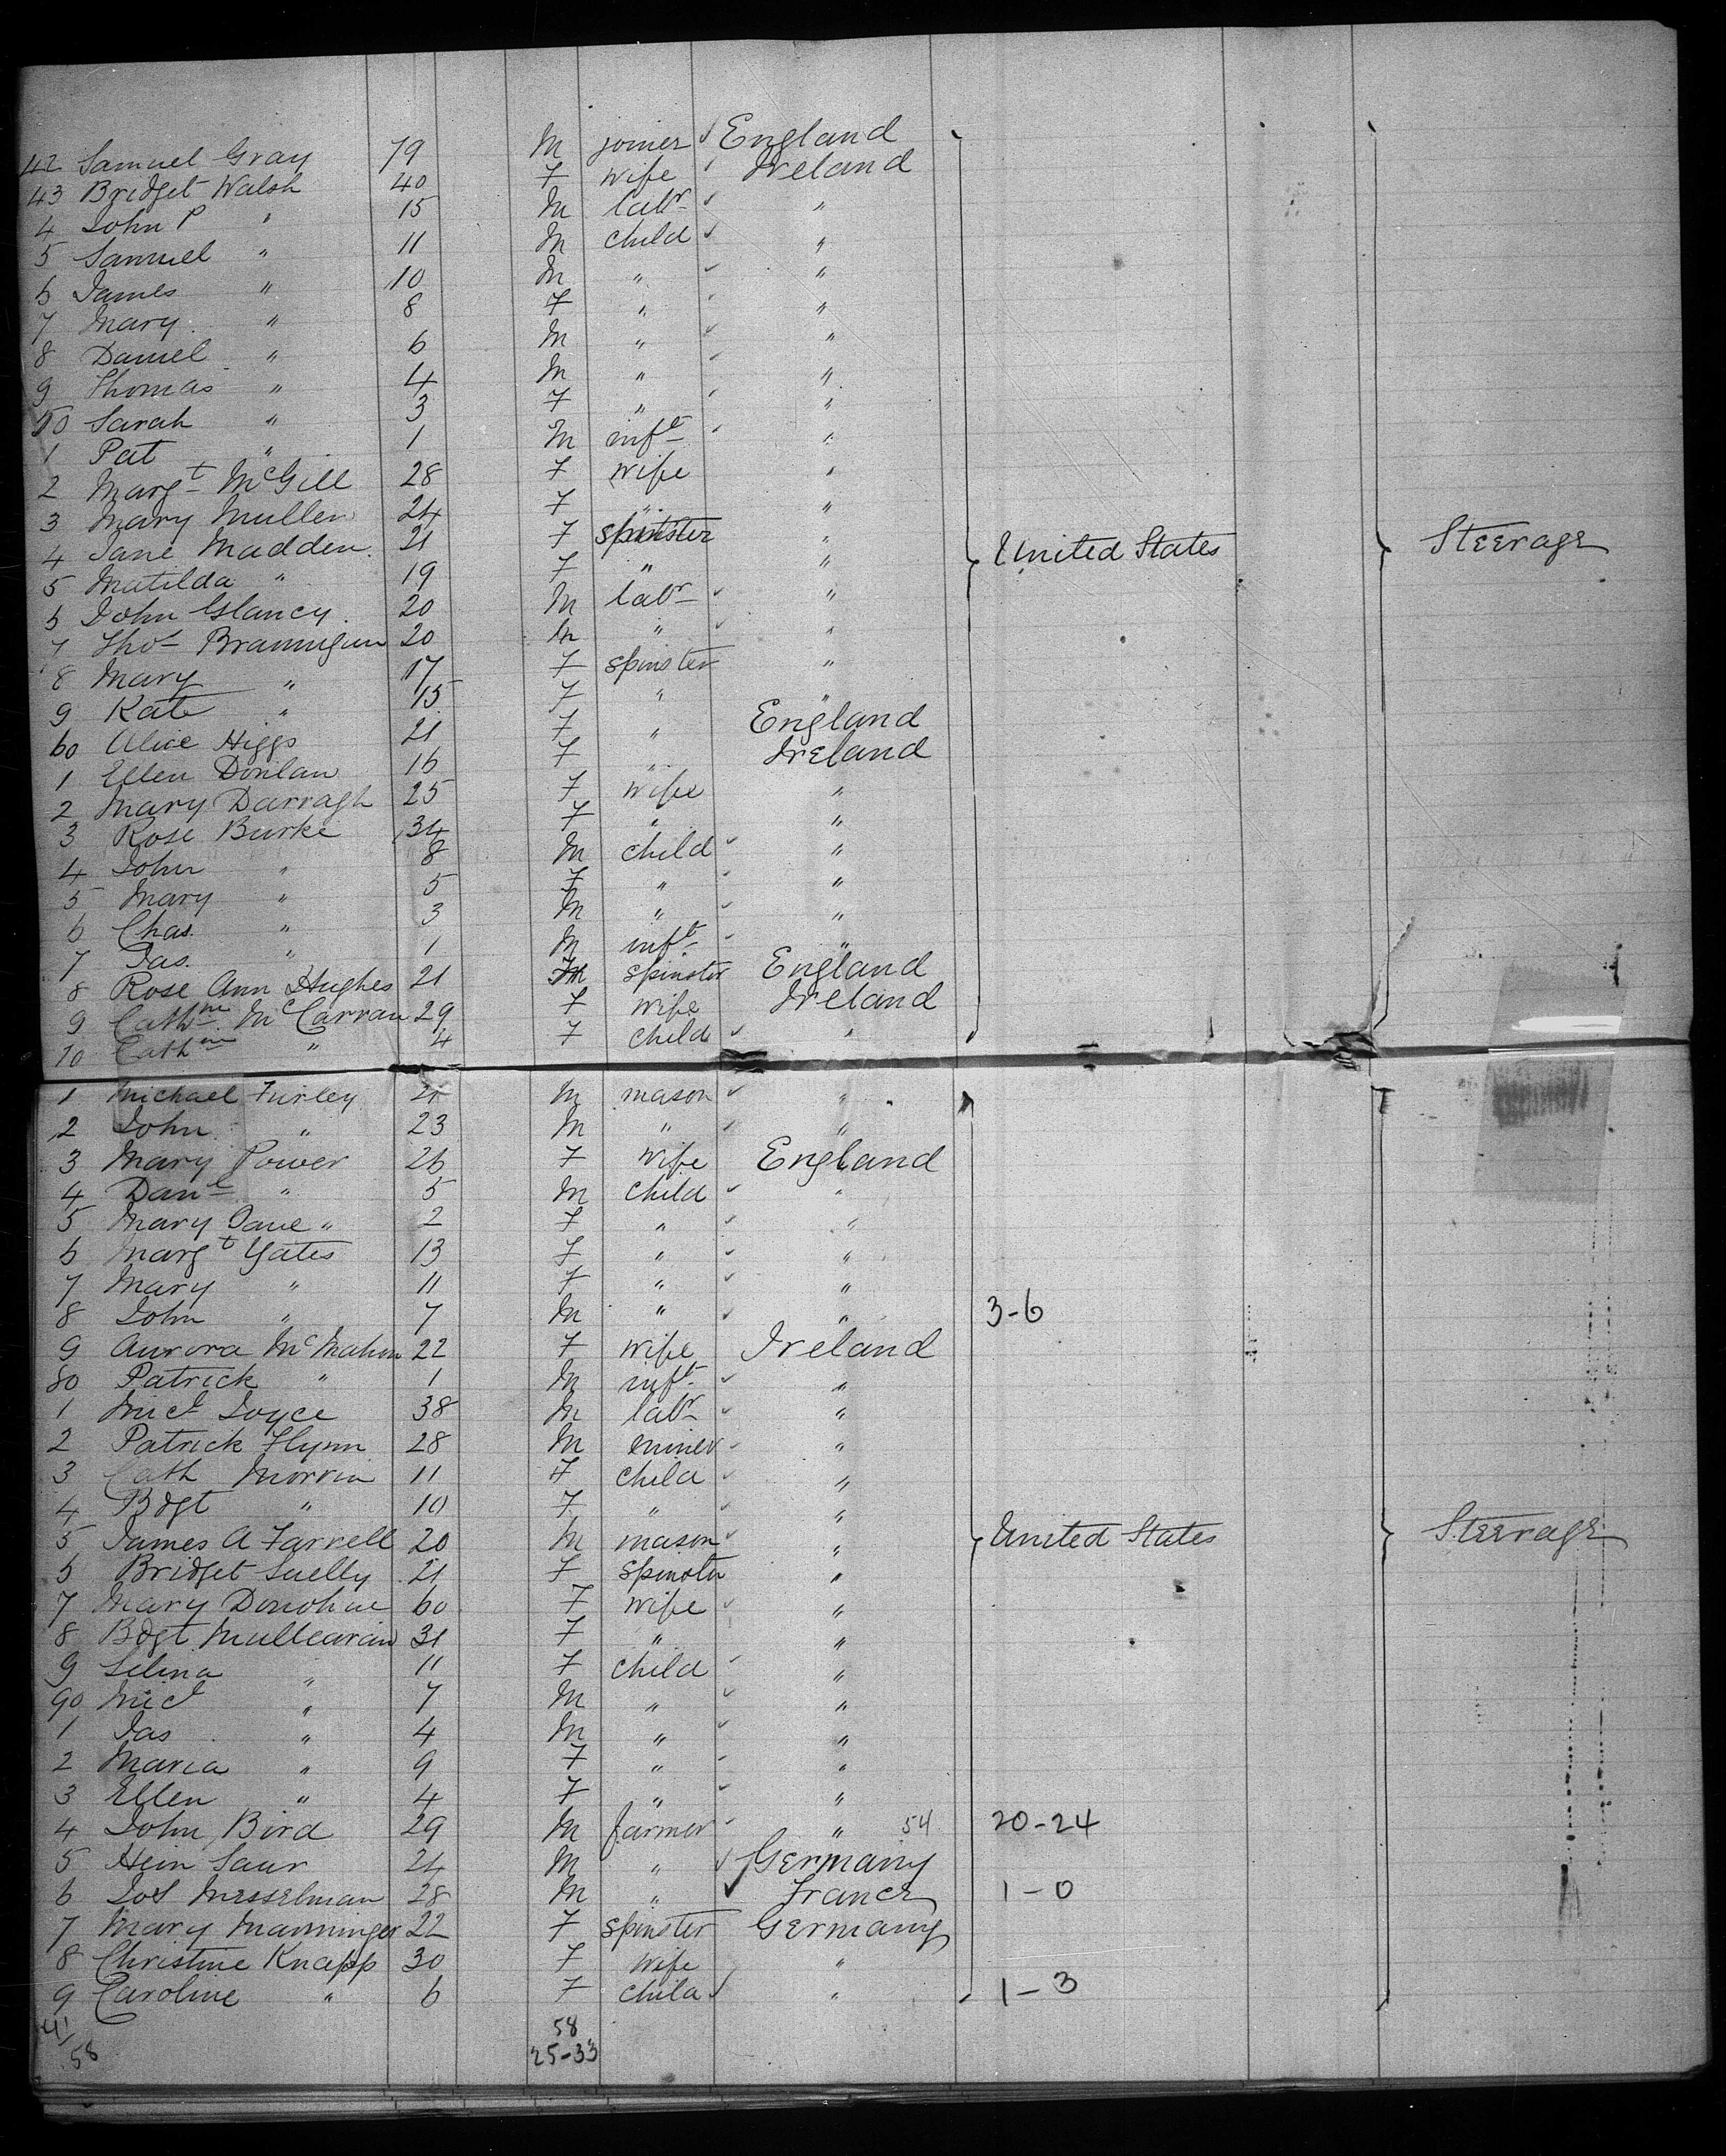 42 Samuel Gray 79 M joiner England
43 Bridget Walsh 40 F wife Ireland
4 John P " 15 M labr "
5 Samuel " 11 M child "
6 James " 10 M " "
7 Mary " 8 F " "
8 Daniel " 6 M " "
9 Thomas " 4 M " "
50 Sarah " 3 F " "
1 Pat " 1 M inft "
2 Margt McGill 28 F wife "
3 Mary Mullen 24 F " "
4 Jane Madden 21 F spinster " United States Steerage
5 Matilda " 19 F " "
6 John Glancy 20 M labr "
7 Thos Brannigan 20 M " "
8 Mary " 17 F spinster "
9 Kate " 15 F " "
60 Alice Higgs 21 F " England
1 Ellen Donlan 16 F " Ireland
2 Mary Darragh 25 F wife "
3 Rose Burke 34 F " "
4 John " 8 M child "
5 Mary " 5 F " "
6 Chas. " 3 M " "
7 Jas. " 1 M inft "
8 Rose Ann Hughes 21 spinster England
9 Cathne McCarran 29 F wife Ireland
70 Cathne " 4 F child "
1 Michael Furley M mason "
2 John " 23 M " "
3 Mary Power 26 F wife England
4 Danl " 5 M child "
5 Mary Jane " 2 F " "
6 Margt Yates 13 F " "
7 Mary " 11 F " "
8 John " 7 M " " 3-6
9 Aurora McMahon 22 F wife Ireland
80 Patrick " 1 M inft "
1 Micl Joyce 38 M labr "
2 Patrick Flynn 28 M miner "
3 Cath Morrin 11 F child "
4 Bdgt " 10 F " "
5 James A Farrell 20 M mason " United States Steerage
6 Bridget 21 F spinster "
7 Mary Donohue 60 F wife "
8 Bdgt 31 F " "
9 Selina " 11 F child "
90 Micl " 7 M " "
1 Jas " 4 M " "
2 Maria " 9 F " "
3 Ellen " 4 F " "
4 John Bird 29 M farmer " 54 20-24
5 Hein Saur 24 M " Germany
6 Jos Messelman 28 M " France 1-0
7 Mary Manninger 22 F spinster Germany
8 Christine Knapp 30 F wife "
9 Caroline " 6 F child " 1-3
41 58
58 25-33